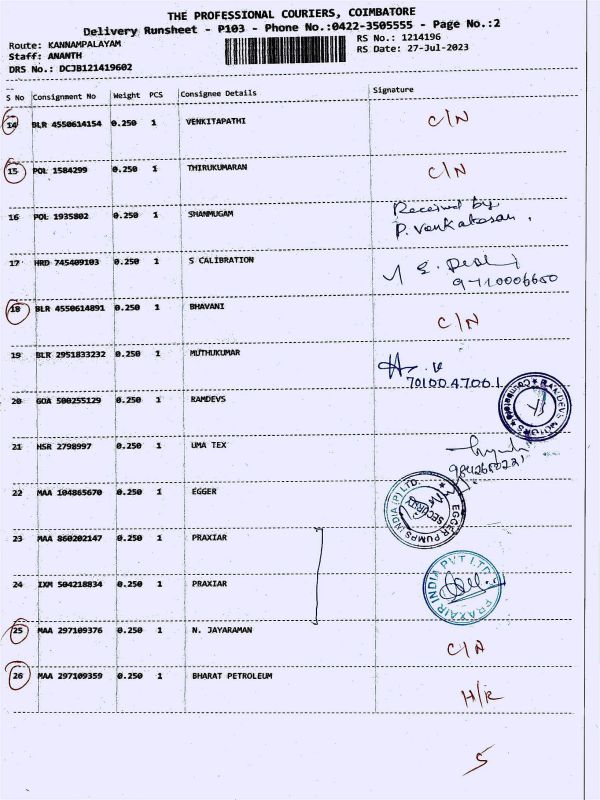 THE PROFESSIONAL COURIERS, COIMBATORE
Delivery Runsheet - P103 - Phone No.:0422-3505555 - Page No.:2
Route: KANNAMPALAYAM
RS No.: 1214196
Staff: ANANTH
RS Date: 27-Jul-2023
DRS No.: DCJB121419602
S No Consignment No Weight PCS Consignee Details Signature
14 BLR 4550614154 0.250 1 VENKITAPATHI C/N
15 POL 1584299 0.250 1 THIRUKUMARAN C/N
16 POL 1935802 0.250 1 SHANMUGAM Received by
P. Venkatesan.
17 HRD 745409103 0.250 1 S CALIBRATION
18 BLR 4550614891 0.250 1 BHAVANI C/N
19 BLR 2951833232 0.250 1 MUTHUKUMAR
7010047061
20 GOA 500255129 0.250 1 RAMDEVS
21 HSR 2798997 0.250 1 UMA TEX
22 MAA 104865670 0.250 1 EGGER
EGGER PUMPS INDIA (P) LTD.
SECURITY
23 MAA 860202147 0.250 1 PRAXIAR
24 IXM 504218834 0.250 1 PRAXIAR
PRAXAIR INDIA PVT LTD
25 MAA 297109376 0.250 1 N. JAYARAMAN C/N
26 MAA 297109359 0.250 1 BHARAT PETROLEUM H/R
5